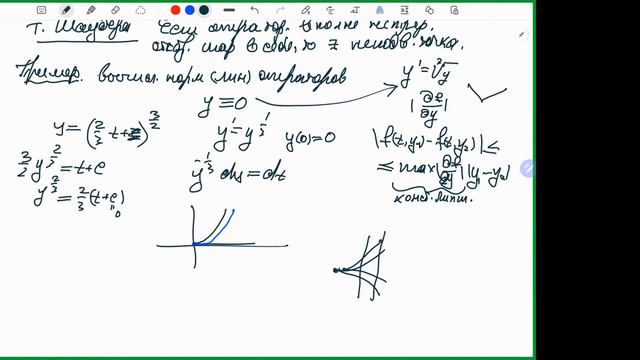 Т. Шаудера Если оператор вполне непрер.
отобр. шар в себя, то ∃ неподв. точка.
Пример. вычисл. норм (лин) операторов
y ≡ 0
y' = ∛y
|∂f/∂y|
y = (2/3 t + c)^{3/2}
y' = y^{1/3} y(0) = 0
3/2 y^{2/3} = t + c
y^{-1/3} dy = dt
y^{2/3} = 2/3 (t + c)
0
|f(t, y₁) − f(t, y₂)| ≤
≤ max |∂f/∂y| |y₁ − y₂|
конст. липш.